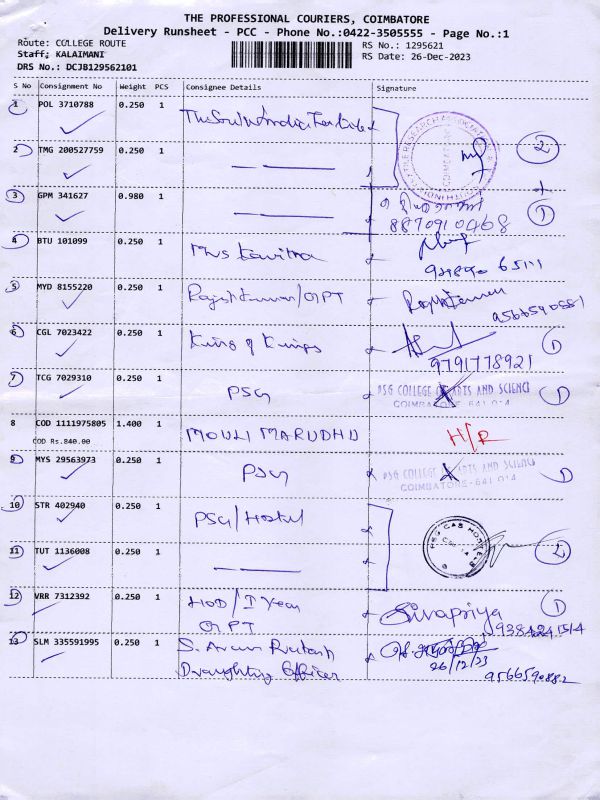 THE PROFESSIONAL COURIERS, COIMBATORE
Delivery Runsheet - PCC - Phone No.:0422-3505555 - Page No.:1
Route: COLLEGE ROUTE
RS No.: 1295621
Staff; KALAIMANI
RS Date: 26-Dec-2023
DRS No.: DCJB129562101
S No Consignment No Weight PCS Consignee Details Signature
1 POL 3710788 0.250 1 The South India Textile
2 TMG 200527759 0.250 1 2
3 GPM 341627 0.980 1 1
8870910468
4 BTU 101099 0.250 1 Mrs Kavitha
5 MYD 8155220 0.250 1 Rajesh Kumar/OPT
9566590551
6 CGL 7023422 0.250 1 King of Kings 1
9791778921
7 TCG 7029310 0.250 1 PSG PSG COLLEGE OF ARTS AND SCIENCE 1
COIMBATORE-641 014
8 COD 1111975805 1.400 1 MOULI MARUDHD H/R
COD Rs.840.00
9 MYS 29563973 0.250 1 PSG PSG COLLEGE OF ARTS AND SCIENCE 1
COIMBATORE-641 014
10 STR 402940 0.250 1 PSG/Hostel
PSG CAS HOSTELS
11 TUT 1136008 0.250 1 2
12 VRR 7312392 0.250 1 HOD/I Year Sivapriya 1
OPT
13 SLM 335591995 0.250 1 S. Arun Prakash
26/12/23
Draughting Officer 9566590882